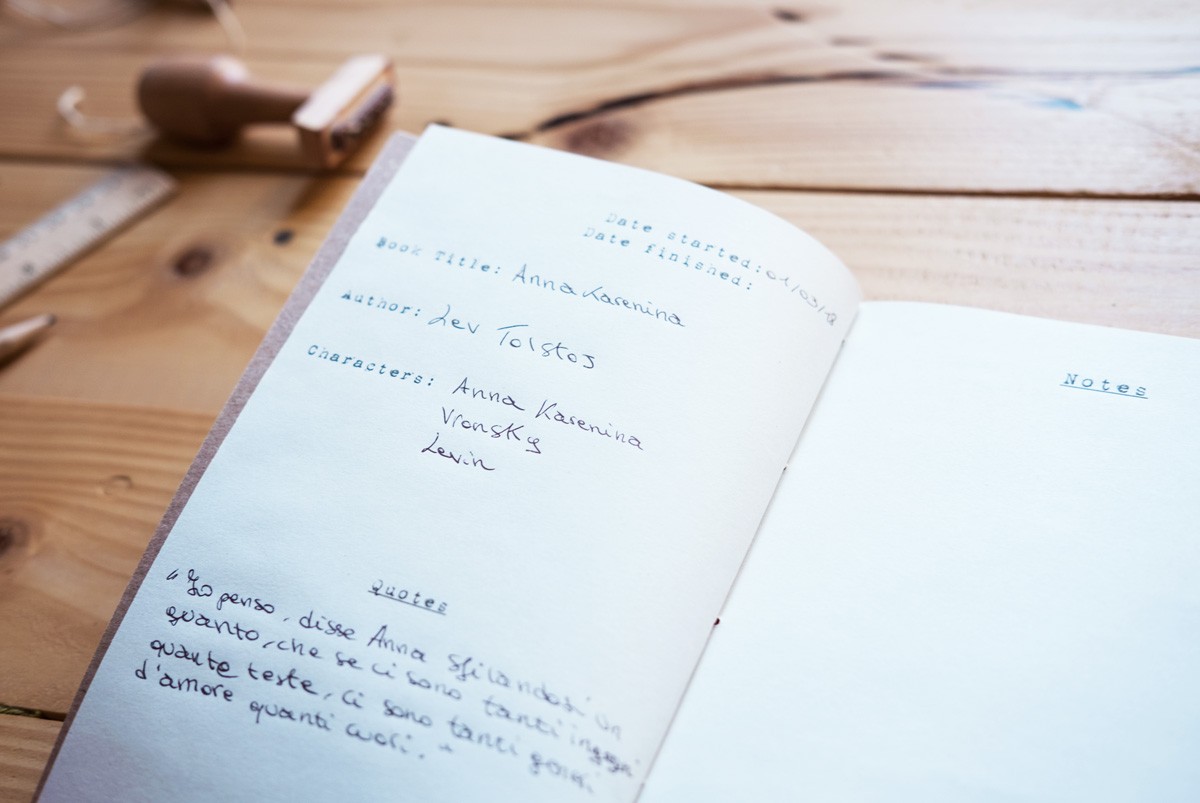 Date started: 01/03/18
Date finished:
Book Title: Anna Karenina
Author: Lev Tolstoj
Characters: Anna Karenina
Vronsky
Levin
Quotes
"Io penso, disse Anna sfilandosi un
guanto, che se ci sono tanti ingegni
quante teste, ci sono tanti generi
d'amore quanti cuori."
Notes